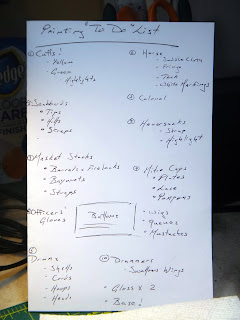 Painting "To Do" List
① Cuffs!
- Yellow
- Green
- Highlights
② Scabbards
• Tips
• Hilts
• Straps
③ Musket Stocks
• Barrels & Firelocks
• Bayonets
• Straps
Officers'
Gloves
Buttons
⑥ Drums
• Shells
• Cords
• Hoops
• Heads
- Saddle Cloth
- Fringe
- Tack
- White Markings
Colonel
Haversacks
- Strap
- Highlight
Mitre Caps
• Plates
• Lace
• Pompons
• Wigs
• Queues
• Mustaches
⑩ Drummers
- Swallows Wings
• Gloss x 2
• Base!
Pledge
FINISH